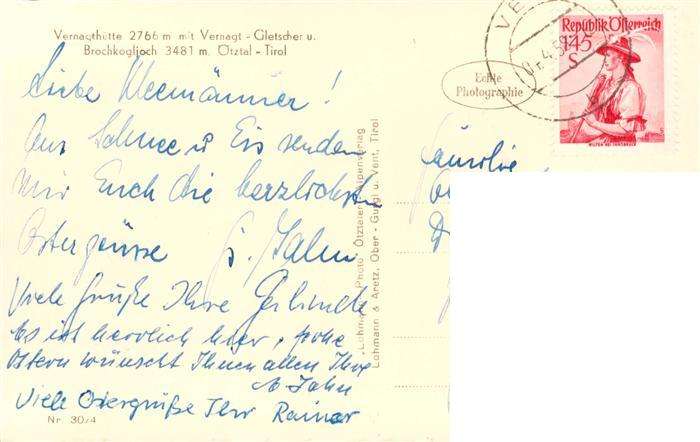 Vernagthütte 2766 m mit Vernagt - Gletscher u.
Brochkogljoch 3481 m. Ötztal - Tirol
Liebe Kleemänner!
Aus Schnee u Eis senden
wir Euch die herzlichsten
Ostergrüsse G. Jahn
Viele Grüße Ihre Gerlinde
Es ist herrlich hier, frohe
Ostern wünscht Ihnen allen Ihre
Jahn
Viele Ostergrüße Ihr Rainer
Nr. 30/4
Photo Ötztaler Alpenverlag
Lohmann & Aretz, Ober - Gurgl u. Vent, Tirol
Echte
Photographie
VE
4.5
Republik Österreich
1.45
S
Familie